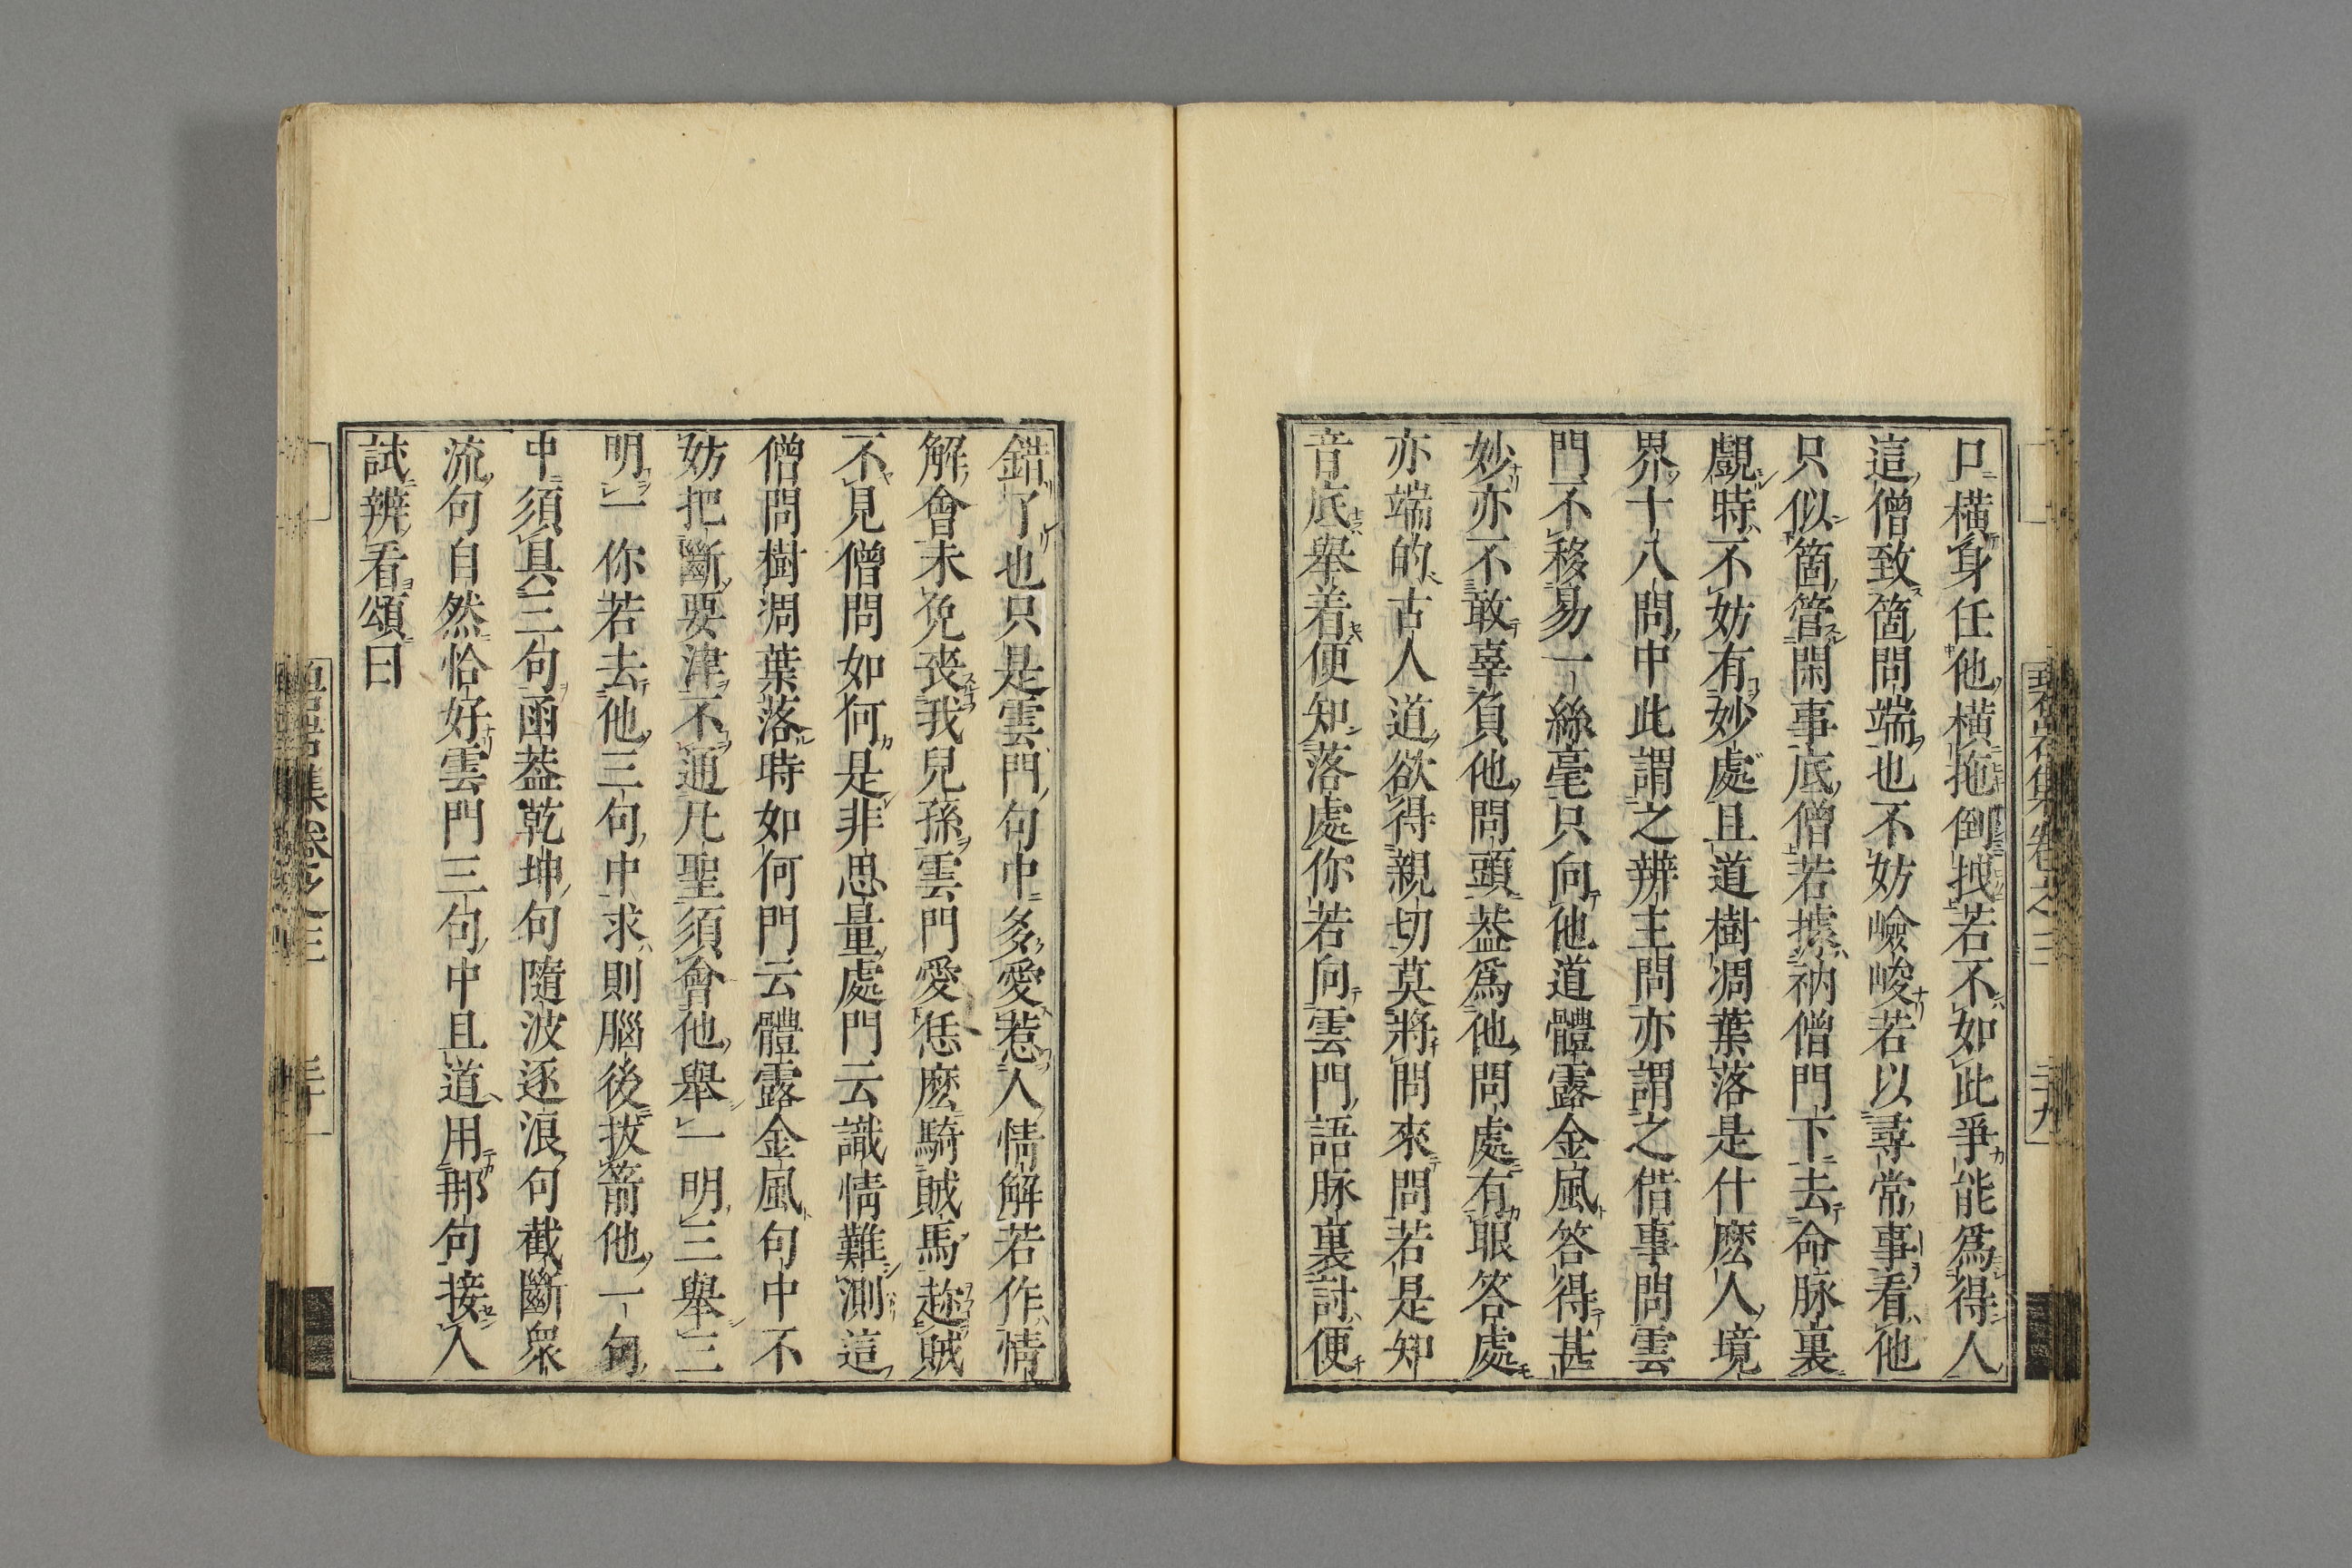 口橫身任他橫拖倒拽若不如此爭能爲得人
這僧致箇問端也不妨嶮峻若以尋常事看他
只似箇管閑事底僧若據衲僧門下去命脉裏
覷時不妨有妙處且道樹凋葉落是什麽人境
界十八問中此謂之辨主問亦謂之借事問雲
門不移易一絲毫只向他道體露金風答得甚
妙亦不敢辜負他問頭葢爲他問處有眼答處
亦端的古人道欲得親切莫將問來問若是知
音底舉着便知落處你若向雲門語脉裏討便
碧岩集卷之三
二十九
錯了也只是雲門句中多愛惹人情解若作情
解會未免丧我兒孫雲門愛恁麽騎賊馬趂賊
不見僧問如何是非思量處門云識情難測這
僧問樹凋葉落時如何門云體露金風句中不
妨把斷要津不通凡聖須會他舉一明三舉三
明一你若去他三句中求則腦後拔箭他一句
中須具三句函葢乾坤句隨波逐浪句截斷衆
流句自然恰好雲門三句中且道用那句接人
試辨看頌曰
集卷之三
三十